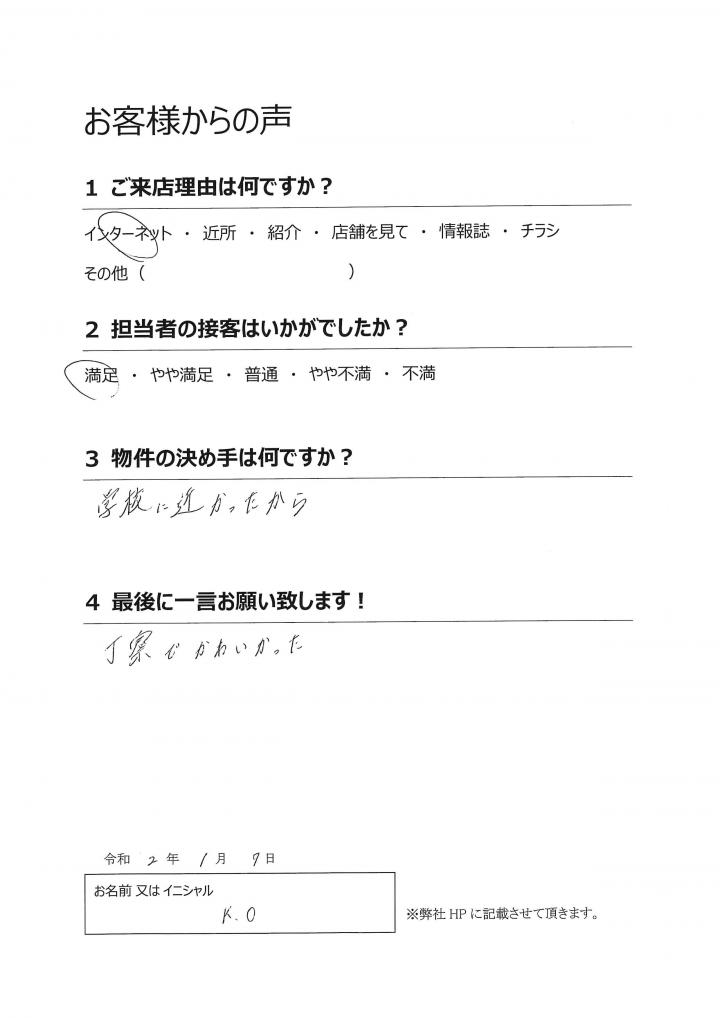 お客様からの声
1 ご来店理由は何ですか？
インターネット ・ 近所 ・ 紹介 ・ 店舗を見て ・ 情報誌 ・ チラシ
その他（ ）
2 担当者の接客はいかがでしたか？
満足 ・ やや満足 ・ 普通 ・ やや不満 ・ 不満
3 物件の決め手は何ですか？
学校に近かったから
4 最後に一言お願い致します！
丁寧でかわいかった
令和 2 年 1 月 9 日
お名前 又は イニシャル
K.O
※弊社 HP に記載させて頂きます。